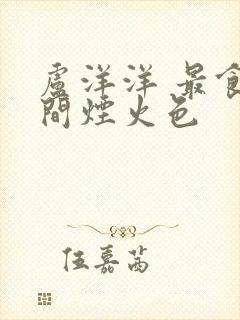 盧洋洋 最食
間煙火色
伍嘉茜